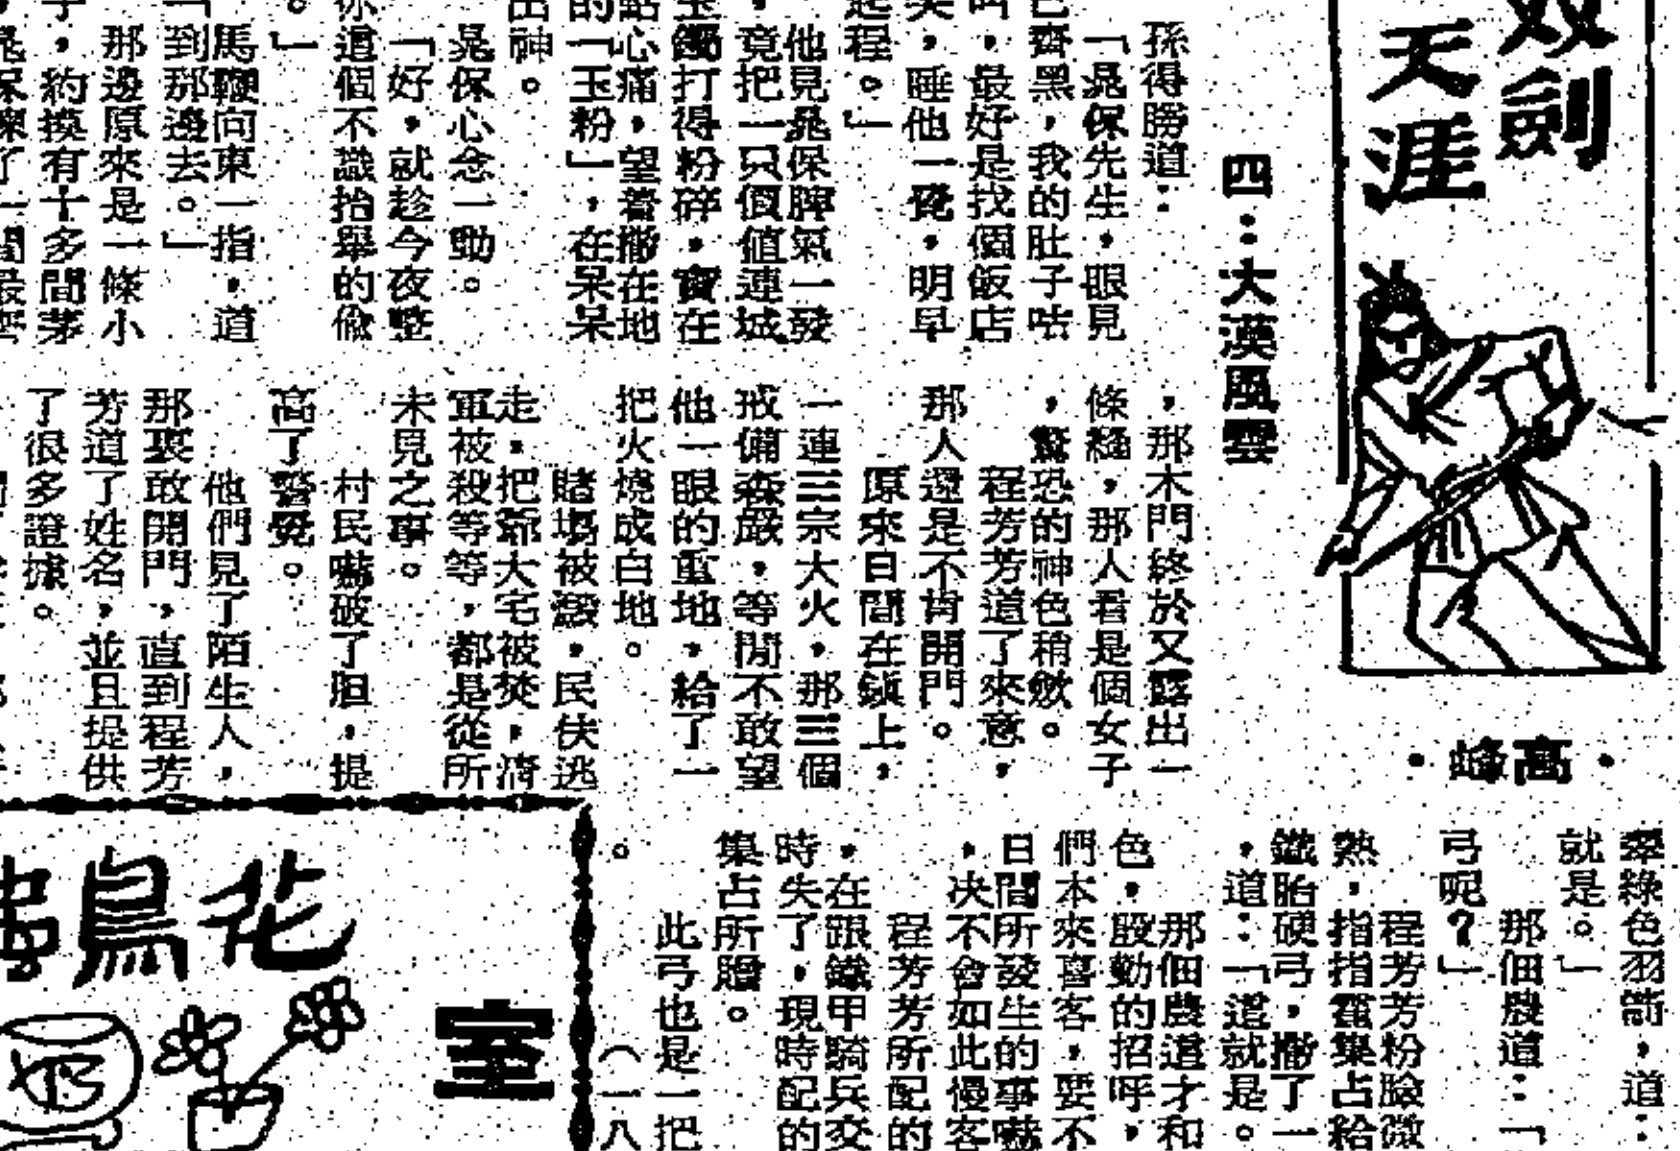 双劍
天涯
·高峰·
四：大漠風雲
孫得勝道：
「晁保先生，眼見
已齊黑，我的肚子咕
叫，最好是找個飯店
，睡他一覺，明早
起程。」
他見晁保脾氣一發
，竟把一只價值連城
玉鐲打得粉碎，實在
點心痛，望着撒在地
的「玉粉」，在呆呆
出神。
晁保心念一動。
「好，就趁今夜整
你這個不識抬舉的傢
。」
馬鞭向東一指，道
「到那邊去。」
那邊原來是一條小
子，約摸有十多間茅
晁保揀了一間最
，那木門終於又露出一
條縫，那人看是個女子
，驚恐的神色稍斂。
程芳芳道了來意，
那人還是不肯開門。
原來日間在鎮上，
一連三宗大火，那三個
戒備森嚴，等閒不敢望
他一眼的重地，給了一
把火燒成白地。
賭場被燬，民伕逃
走，把爺大宅被焚，清
軍被殺等等，都是從所
未見之事。
村民嚇破了胆，提
高了警覺。
他們見了陌生人，
那裏敢開門，直到程芳
芳道了姓名，並且提供
了很多證據。
翠綠色羽箭，道：
就是。」
那佃農道：「
弓呢？」
程芳芳粉臉微
熱，指指霍集占給
鐵胎硬弓，撒了一
，道：「這就是。
那佃農道才和
色，殷勤的招呼，
們本來喜客，要不
日間所發生的事嚇
，决不會如此慢客
程芳芳所配的
，在跟鐵甲騎兵交
時失了，現時配的
集占所贈。
此弓也是一把
。（一八
花鳥蟲
室